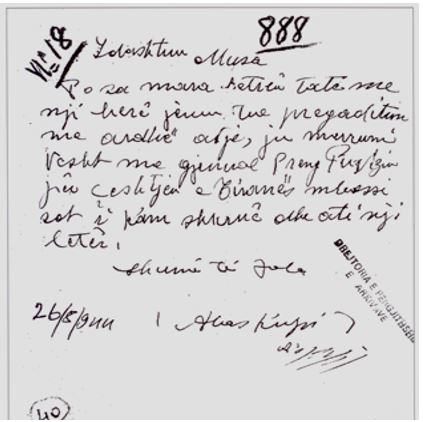 888
VI/18
I dashtun Musa
Posa mora letrën tate me
një herë jemi tue pregaditun
me ardhë atje, ju merruni
vesht me gjeneral Preng
për ceshtjen e Tiranës mbassi
sot i kam shkrue dhe ati nji
letër.
shumë të fala
26/8/944 ( Abas Kupi )
DREJTORIA E PERGJITHSHME
E ARKIVAVE
40